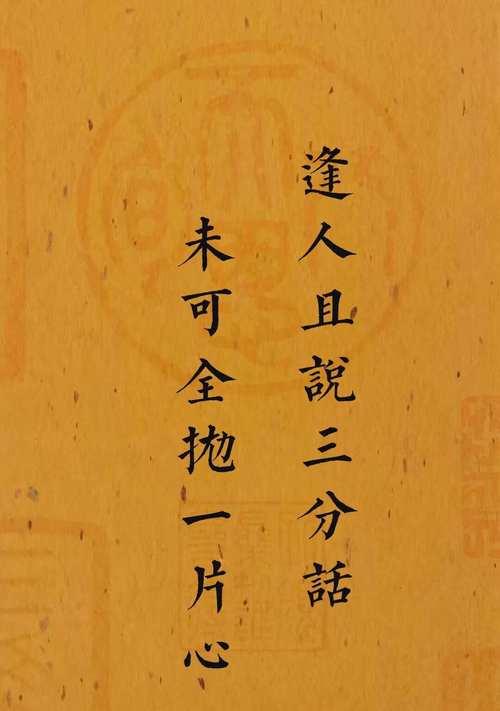 逢人且說三分話
未可全拋一片心